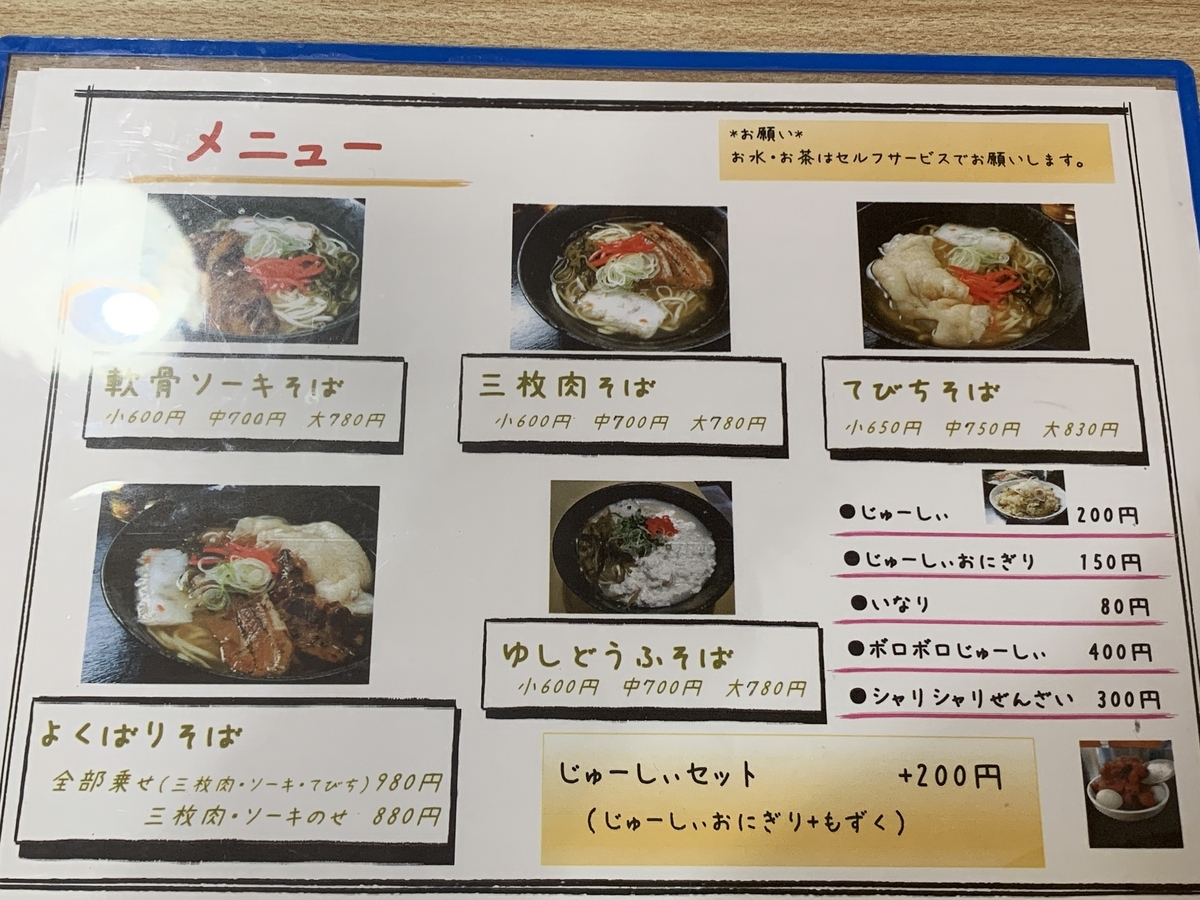 メニュー
*お願い*
お水・お茶はセルフサービスでお願いします。
軟骨ソーキそば
小600円 中700円 大780円
三枚肉そば
小600円 中700円 大780円
てびちそば
小650円 中750円 大830円
よくばりそば
全部乗せ(三枚肉・ソーキ・てびち)980円
三枚肉・ソーキのせ 880円
ゆしどうふそば
小600円 中700円 大780円
●じゅーしぃ 200円
●じゅーしぃおにぎり 150円
●いなり 80円
●ボロボロじゅーしぃ 400円
●シャリシャリぜんざい 300円
じゅーしぃセット +200円
(じゅーしぃおにぎり+もずく)